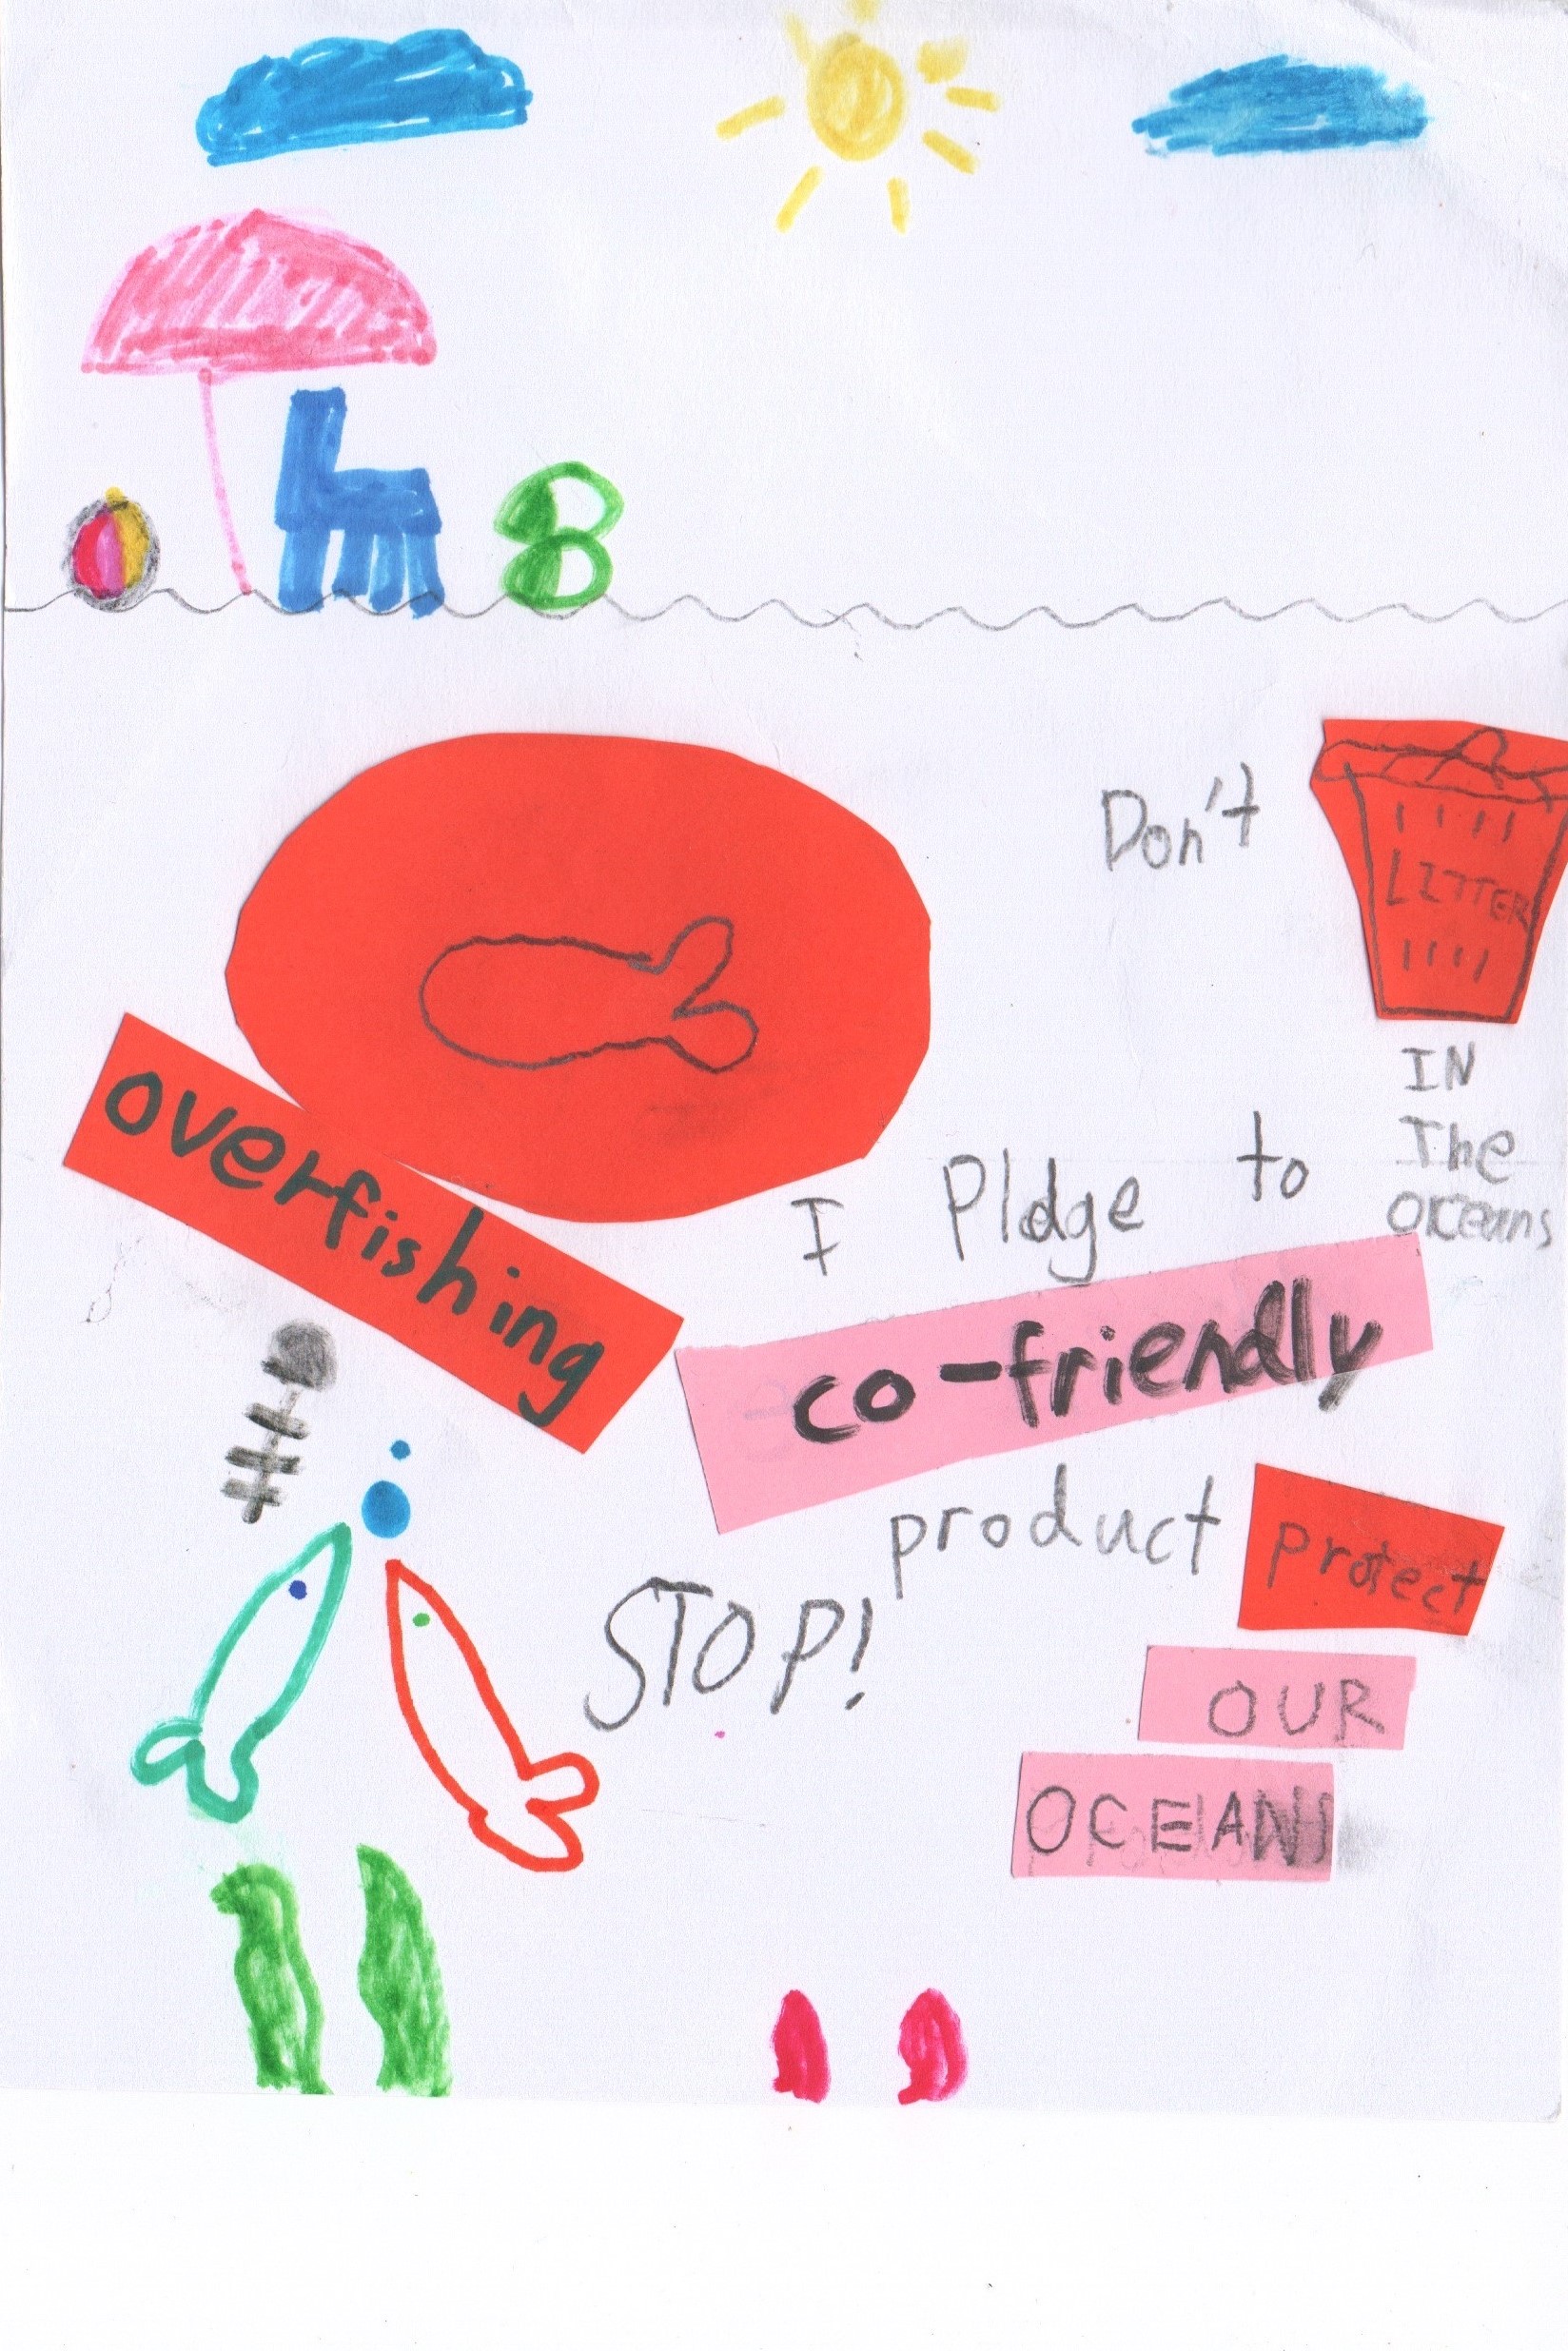 Don't
LITTER
IN
The
oceans
overfishing
I Pldge to
co-friendly
product
STOP!
protect
OUR
OCEANS